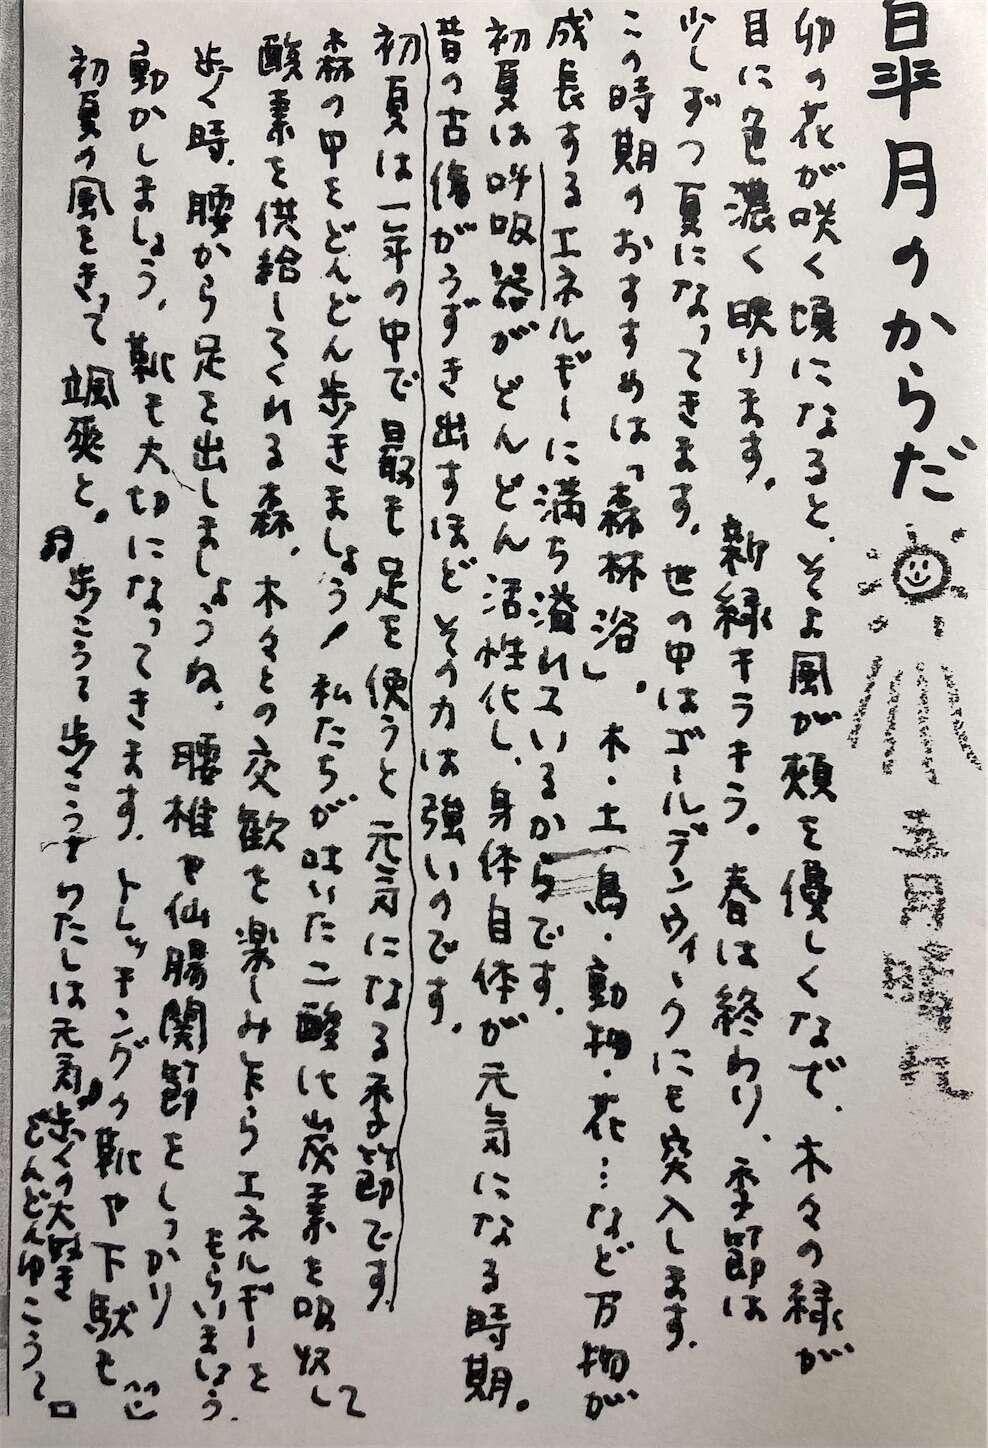 皐月のからだ
五月晴れ
卯の花が咲く頃になると、そよ風が頬を優しくなで、木々の緑が
目に色濃く映ります。新緑キラキラ。春は終わり、季節は
少しずつ夏になってきます。世の中はゴールデンウィークにも突入します。
この時期のおすすめは「森林浴」。木・土・鳥・動物・花…など万物が
成長するエネルギーに満ち溢れているからです。
初夏は呼吸器がどんどん活性化し、身体自体が元気になる時期。
昔の古傷がうずき出すほどその力は強いのです。
初夏は一年の中で最も足を使うと元気になる季節です。
森の中をどんどん歩きましょう!私たちが吐いた二酸化炭素を吸収して
酸素を供給してくれる森。木々との交歓を楽しみながらエネルギーを
もらいましょう。
歩く時、腰から足を出しましょうね。腰椎や仙腸関節をしっかり
動かしましょう。靴も大切になってきます。トレッキングの靴や下駄も
初夏の風をきって颯爽と。
歩こう 歩こう わたしは元気 歩くの大好き
どんどんゆこう